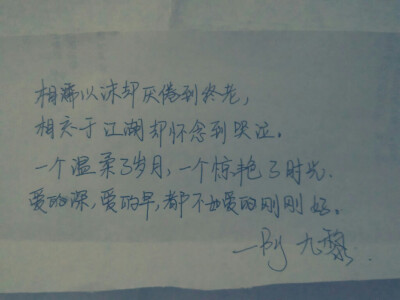 相濡以沫却厌倦到终老,
相忘于江湖却怀念到哭泣。
一个温柔了岁月,一个惊艳了时光.
爱的深,爱的早,都不如爱的刚刚好。
—By 九黎.